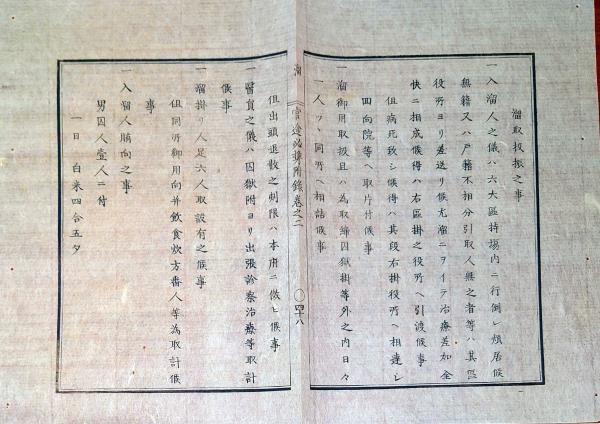 溜取扱振之事
一入溜人之儀ハ六大區持場内ニ行倒レ煩居候
無籍又ハ戸籍不相分引取人無之者等ハ其區
役所ヨリ差送リ候尤溜ニヲイテ治療差加全
快ニ相成候得ハ右區掛之役所ヘ引渡候事
但病死致シ候得ハ其段右掛役所ヘ相達シ
回向院等ヘ取片付候事
一溜御用取扱且ハ為取締囚獄掛等外之内日々
一人ツヽ同所ヘ相詰候事
溜
官途必携附録巻之二
〇四十八
但出頭退散之刻限ハ本府ニ傚ヒ候事
一醫員之儀ハ囚獄附ヨリ出張診察治療等取計
候事
一溜掛リ人足六人取設有之候事
但同所御用向并飲食炊方番人等為取計候
事
一入溜人賄向之事
男囚人壹人ニ付
一日 白米四合五夕